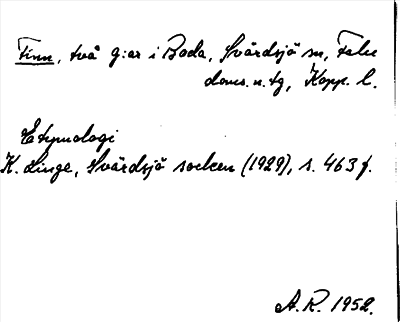 Finn, två g:ar i Boda, Svärdsjö sn, Falu
doms. n. tg, Kopp. l.
Etymologi
K. Linge, Svärdsjö socken (1929), s. 463 f.
A. R. 1952.